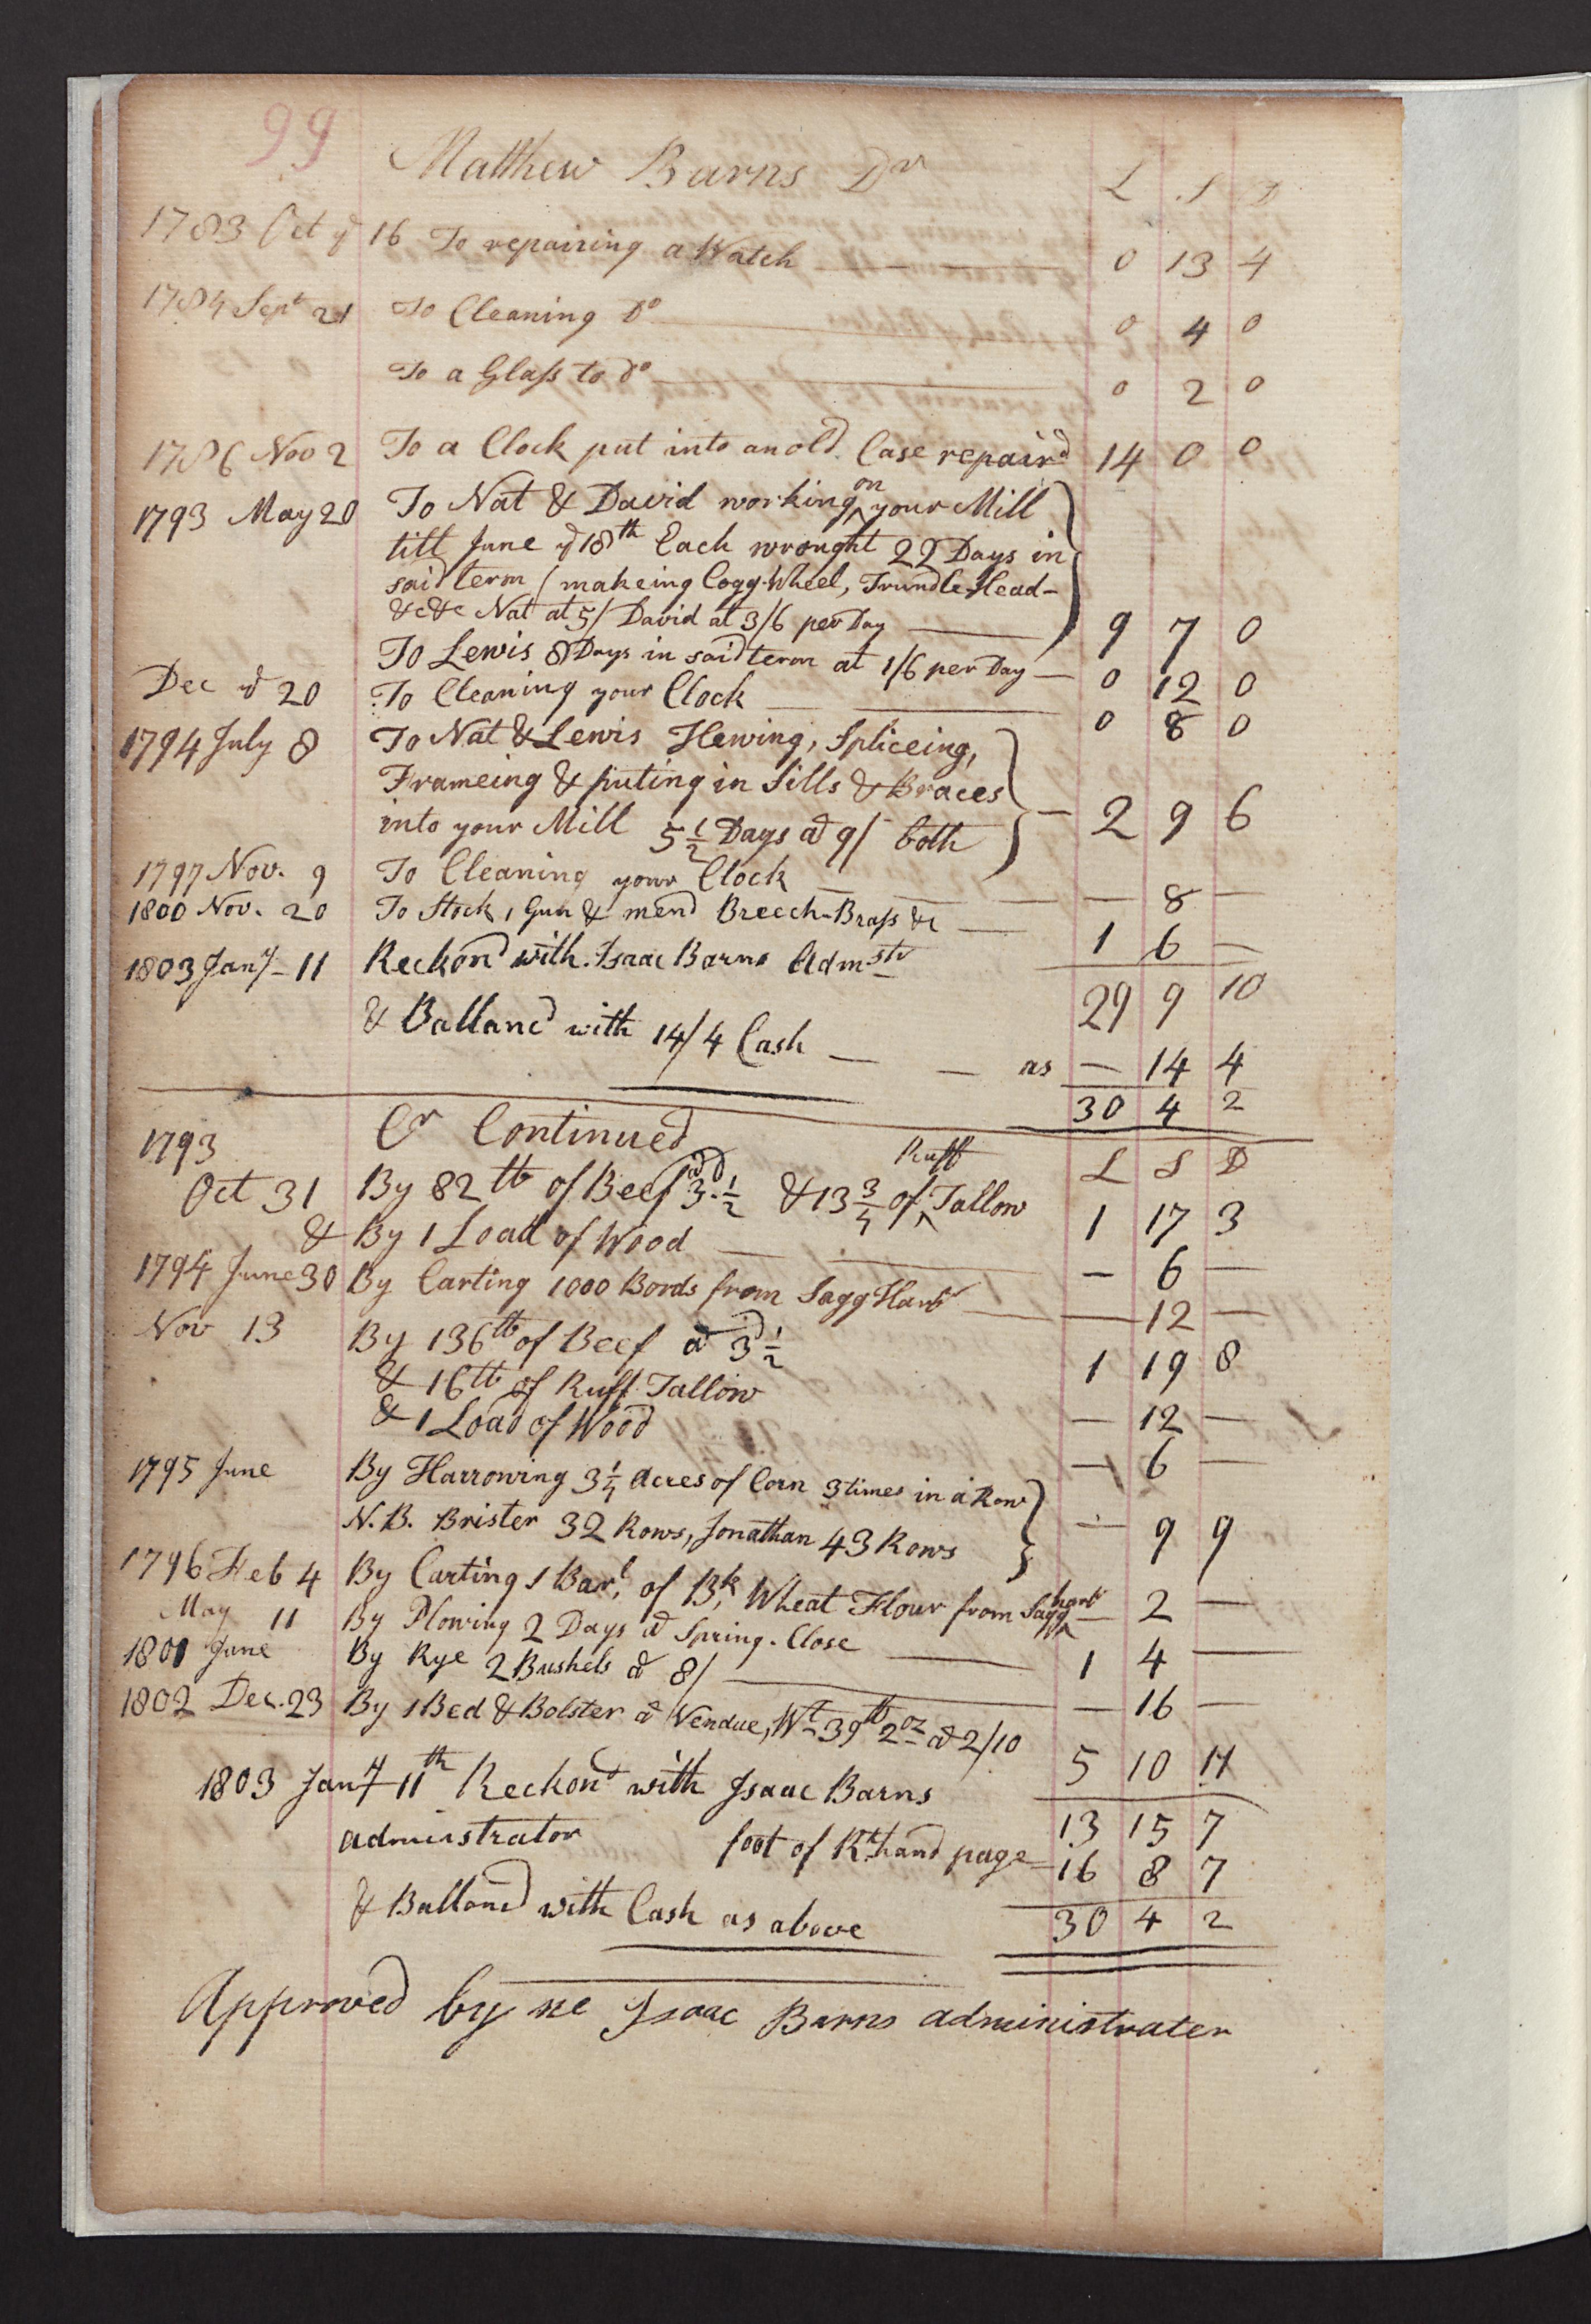 99
Matthew Barns Dr L S D
1783 Oct ye 16 To repairing a Watch 0 13 4
1784 Sept 21 To Cleaning Do 0 4 0
To a Glass to do 0 2 0
1786 Nov 2 To a Clock put into an old Case repaird 14 0 0
1793 May 20 To Nat & David working on your Mill
till June ye 18th Each wrought 22 Days in
said term / makeing Cogg-Wheel, Trundle Head-
&c &c Nat at 5/ David at 3/6 per Day 9 7 0
To Lewis 8 Days in said term at 1/6 per Day — 0 12 0
Dec ye 20 To Cleaning your Clock 0 8 0
1794 July 8 To Nat & Lewis Hewing, Spliceing,
Frameing & puting in Sills & Braces
into your Mill 5 1/2 Days @ 9/ both — 2 9 6
1797 Nov. 9 To Cleaning your Clock — 8 —
1800 Nov. 20 To Stock 1 Gun & mend Breech-Brass &c — 1 6 —
1803 Jany 11 Reckond with Isaac Barns Admstr
29 9 10
& Balland with 14/4 Cash — as — 14 4
30 4 2
1793 Cr Continued L S D
Oct 31 By 82 lb of Beef @ 3d 1/2 & 13 3/4 of Ruff Tallow 1 17 3
& By 1 Load of Wood — 6 —
1794 June 30 By Carting 1000 Bords from Sagg Harbr — 12 —
Nov 13 By 136 lb of Beef @ 3d 1/2 1 19 8
& 16 lb of Ruff Tallow — 12 —
& 1 Load of Wood — 6 —
1795 June By Harrowing 3 1/4 Acres of Corn 3 times in a Row
N.B. Brister 32 Rows, Jonathan 43 Rows — 9 9
1796 Feb 4 By Carting 1 Barl, of Bk, Wheat Flour from Sagg harbr — 2 —
May 11 By Plowing 2 Days @ Spring-Close 1 4 —
1801 June By Rye 2 Bushels @ 8/ — 16 —
1802 Dec. 23 By 1 Bed & Bolster @ Vendue, Wt 39 lb 2 oz @ 2/10 5 10 11
1803 Jany 11th Reckond with Isaac Barns
13 15 7
admistrator foot of Rt hand page 16 8 7
& Balland with Cash as above 30 4 2
Approved by me Isaac Barns administrater